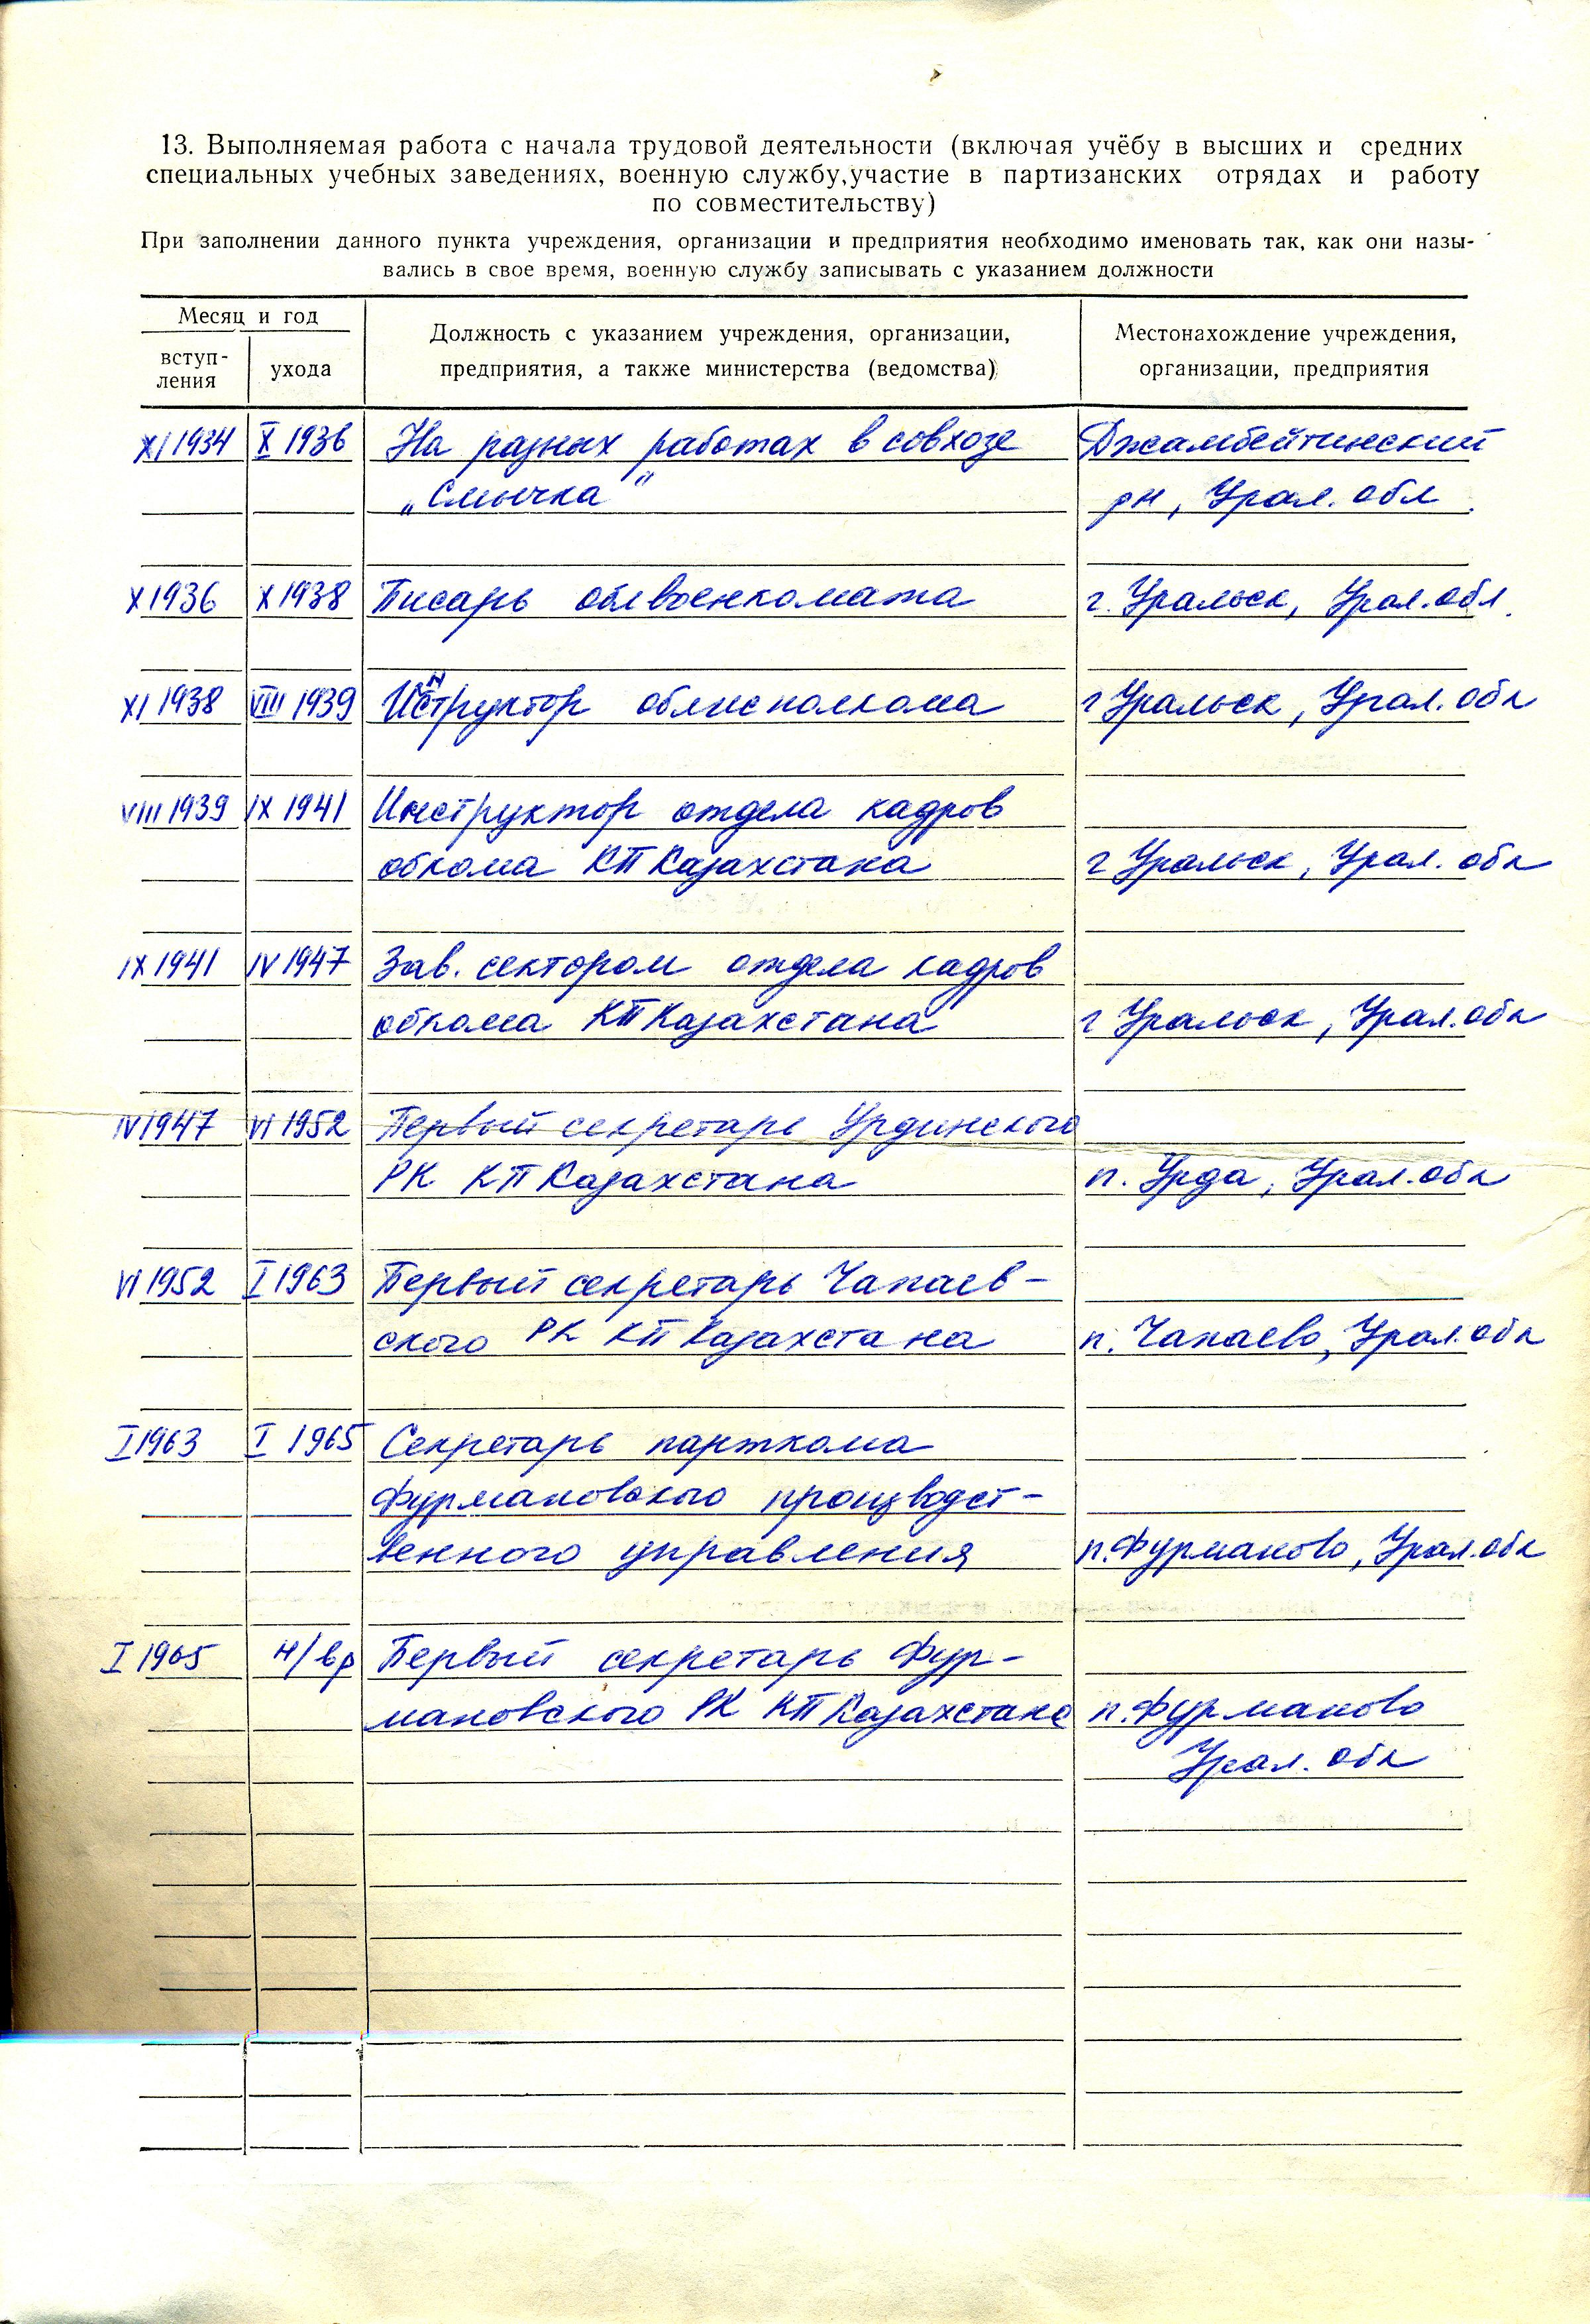 13. Выполняемая работа с начала трудовой деятельности (включая учёбу в высших и средних
специальных учебных заведениях, военную службу,участие в партизанских отрядах и работу
по совместительству)
При заполнении данного пункта учреждения, организации и предприятия необходимо именовать так, как они назы-
вались в свое время, военную службу записывать с указанием должности
Месяц и год
вступ-
ления
ухода
Должность с указанием учреждения, организации,
предприятия, а также министерства (ведомства)
Местонахождение учреждения,
организации, предприятия
XI 1934 X 1936 На разных работах в совхозе Джамбейтинский
„Смычка" рн, Урал. обл.
X 1936 X 1938 Писарь облвоенкомата г. Уральск, Урал. обл.
XI 1938 VIII 1939 Инструктор облисполкома г Уральск, Урал. обл
VIII 1939 IX 1941 Инструктор отдела кадров
обкома КП Казахстана г Уральск, Урал. обл
IX 1941 IV 1947 Зав. сектором отдела кадров
обкома КП Казахстана г Уральск, Урал. обл
IV 1947 VI 1952 Первый секретарь Урдинского
РК КП Казахстана п. Урда, Урал. обл
VI 1952 I 1963 Первый секретарь Чапаев-
ского РК КП Казахстана п. Чапаево, Урал. обл
I 1963 I 1965 Секретарь парткома
Фурмановского производст-
венного управления п. Фурманово, Урал. обл
I 1965 н/вр Первый секретарь Фур-
мановского РК КП Казахстана п. Фурманово
Урал. обл